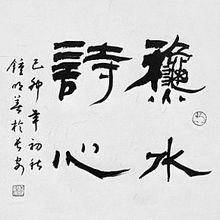 龝水
詩心
己卯年初秋
鐘明善於長安